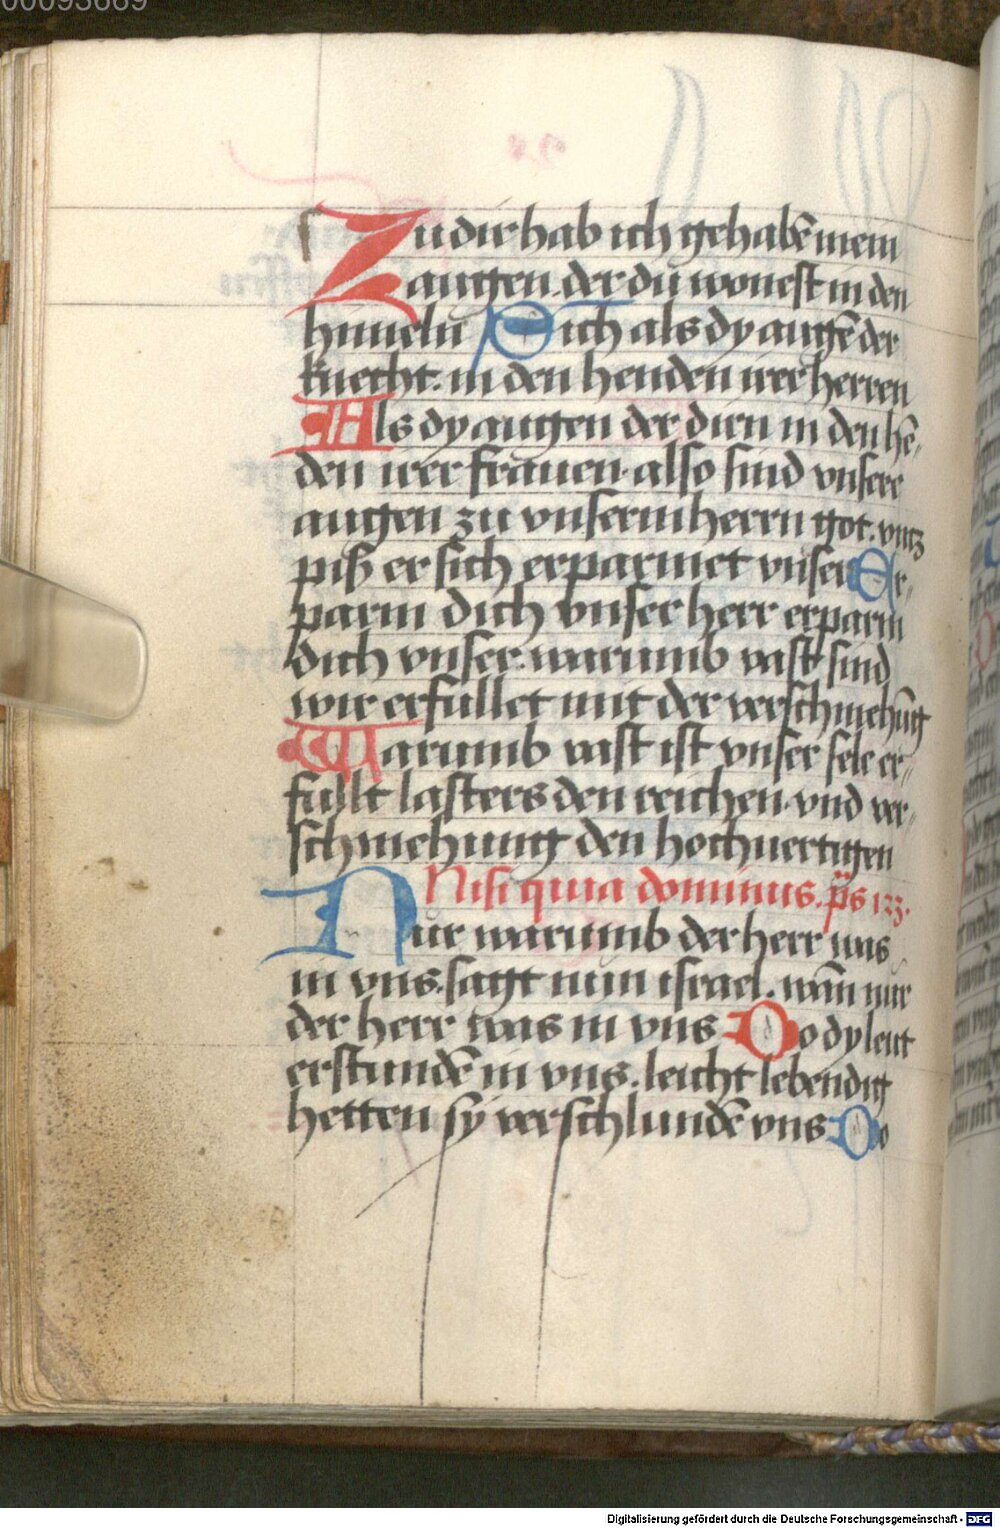 00093669
Zu dir hab ich gehabē mein
augen der du wonest in den
himeln Sich als dy augē der
knecht. in den henden irer herren
Als dy augen der dirn in den hē-
den irer frauen. also sind vnsere
augen zu vnserm herrn got. vntz
piß er sich erparmet vnser Er-
parm dich vnser herr erparm
dich vnser. warumb vast sind
wir erfullet mit der verschmehūg
Warumb vast ist vnser sele er-
fullt lasters den reichen. vnd ver-
schmehung den hochuertigen
Nisi quia dominus. p̄s 123.
Nur warumb der herr was
in vns. sagt nun israel. wān nur
der herr was in vns Do dy leut
erstundē in vns. leicht lebendig
hetten sy verschlundē vns Do
Digitalisierung gefördert durch die Deutsche Forschungsgemeinschaft - DFG